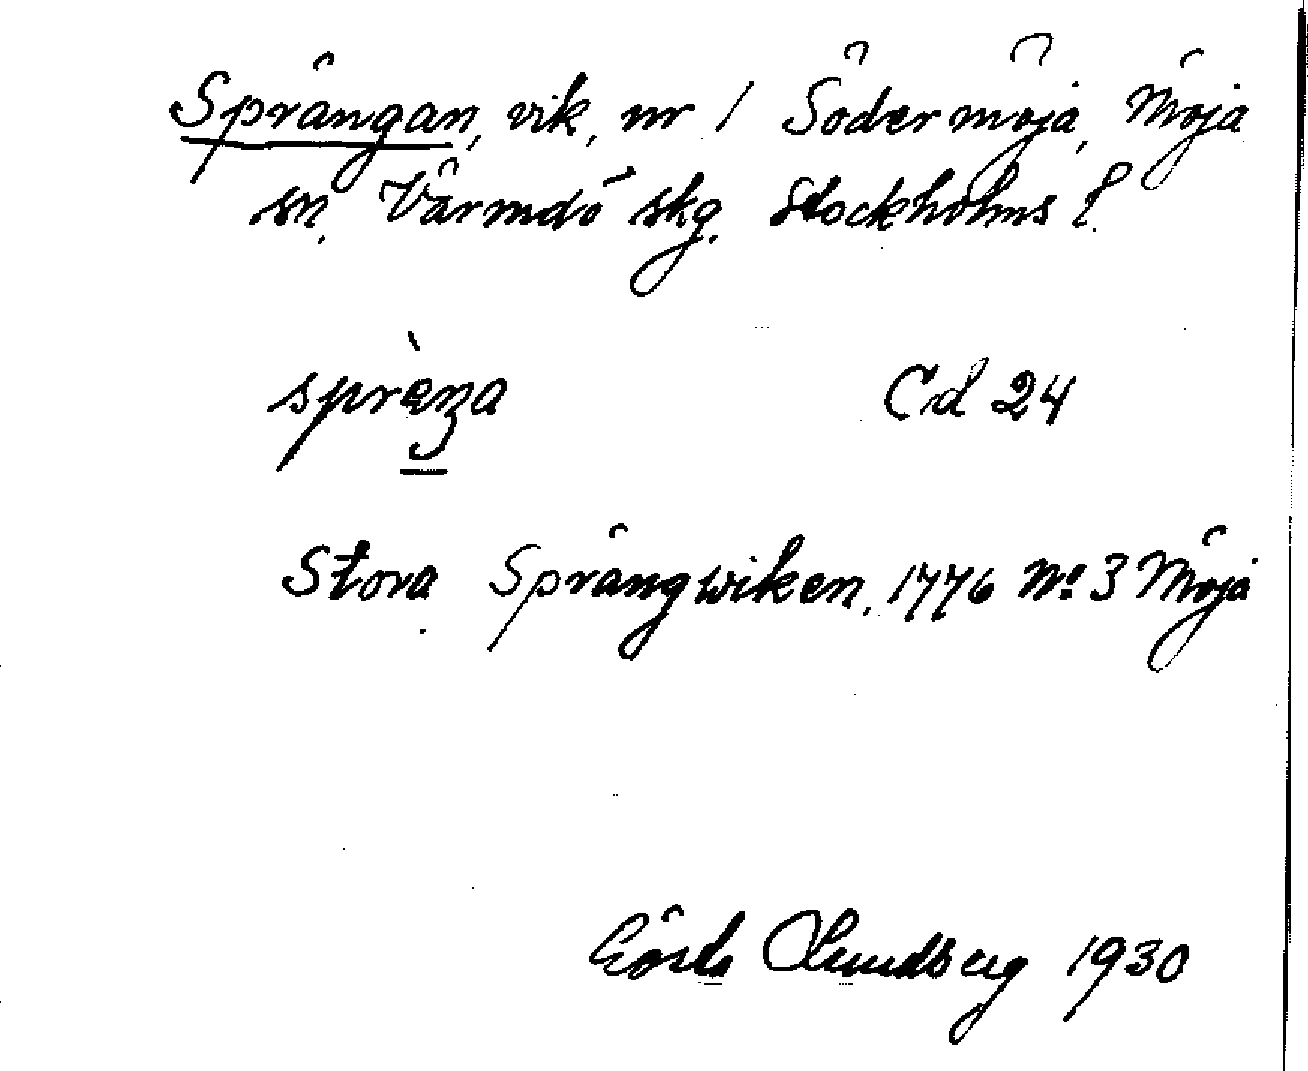 Sprängan, vik, nr 1 Södermöja, Möja
sn, Värmdö skg. Stockholms l.
sprèŋa Cd 24
Stora Sprängwiken, 1776 No 3 Möja
Gösta Lundberg 1930